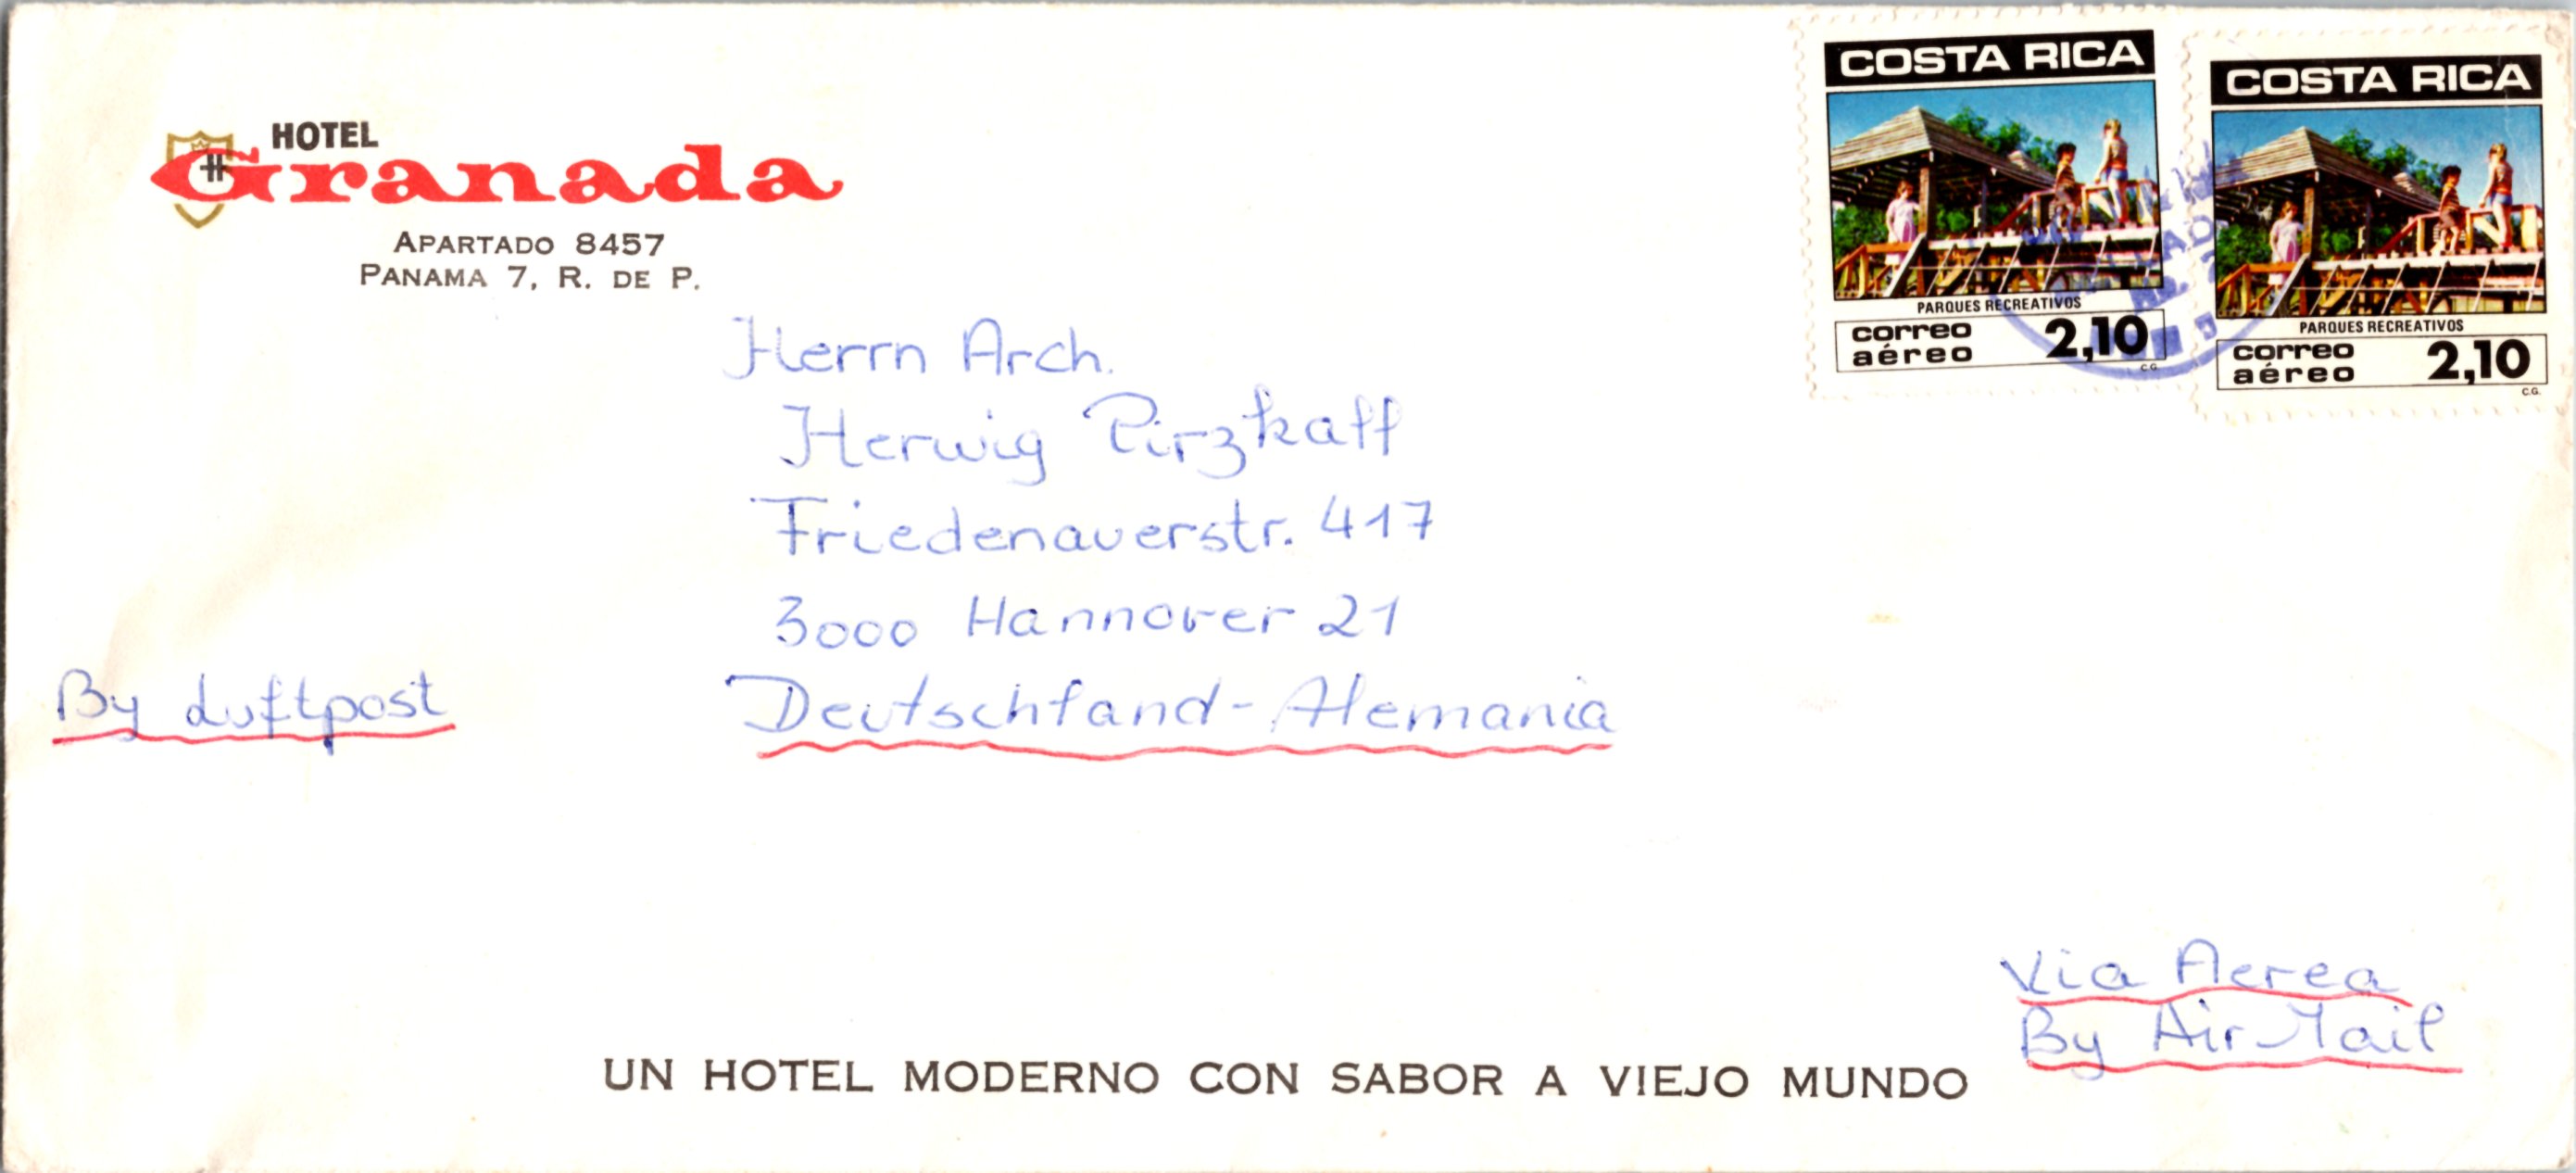 HOTEL
Granada
APARTADO 8457
PANAMA 7, R. DE P.
COSTA RICA
PARQUES RECREATIVOS
correo
aéreo 2,10
C.G.
COSTA RICA
PARQUES RECREATIVOS
correo
aéreo 2,10
C.G.
Herrn Arch.
Herwig Pirzkall
Friedenauerstr. 417
3000 Hannover 21
Deutschland-Alemania
By Luftpost
Via Aerea
By Air Mail
UN HOTEL MODERNO CON SABOR A VIEJO MUNDO